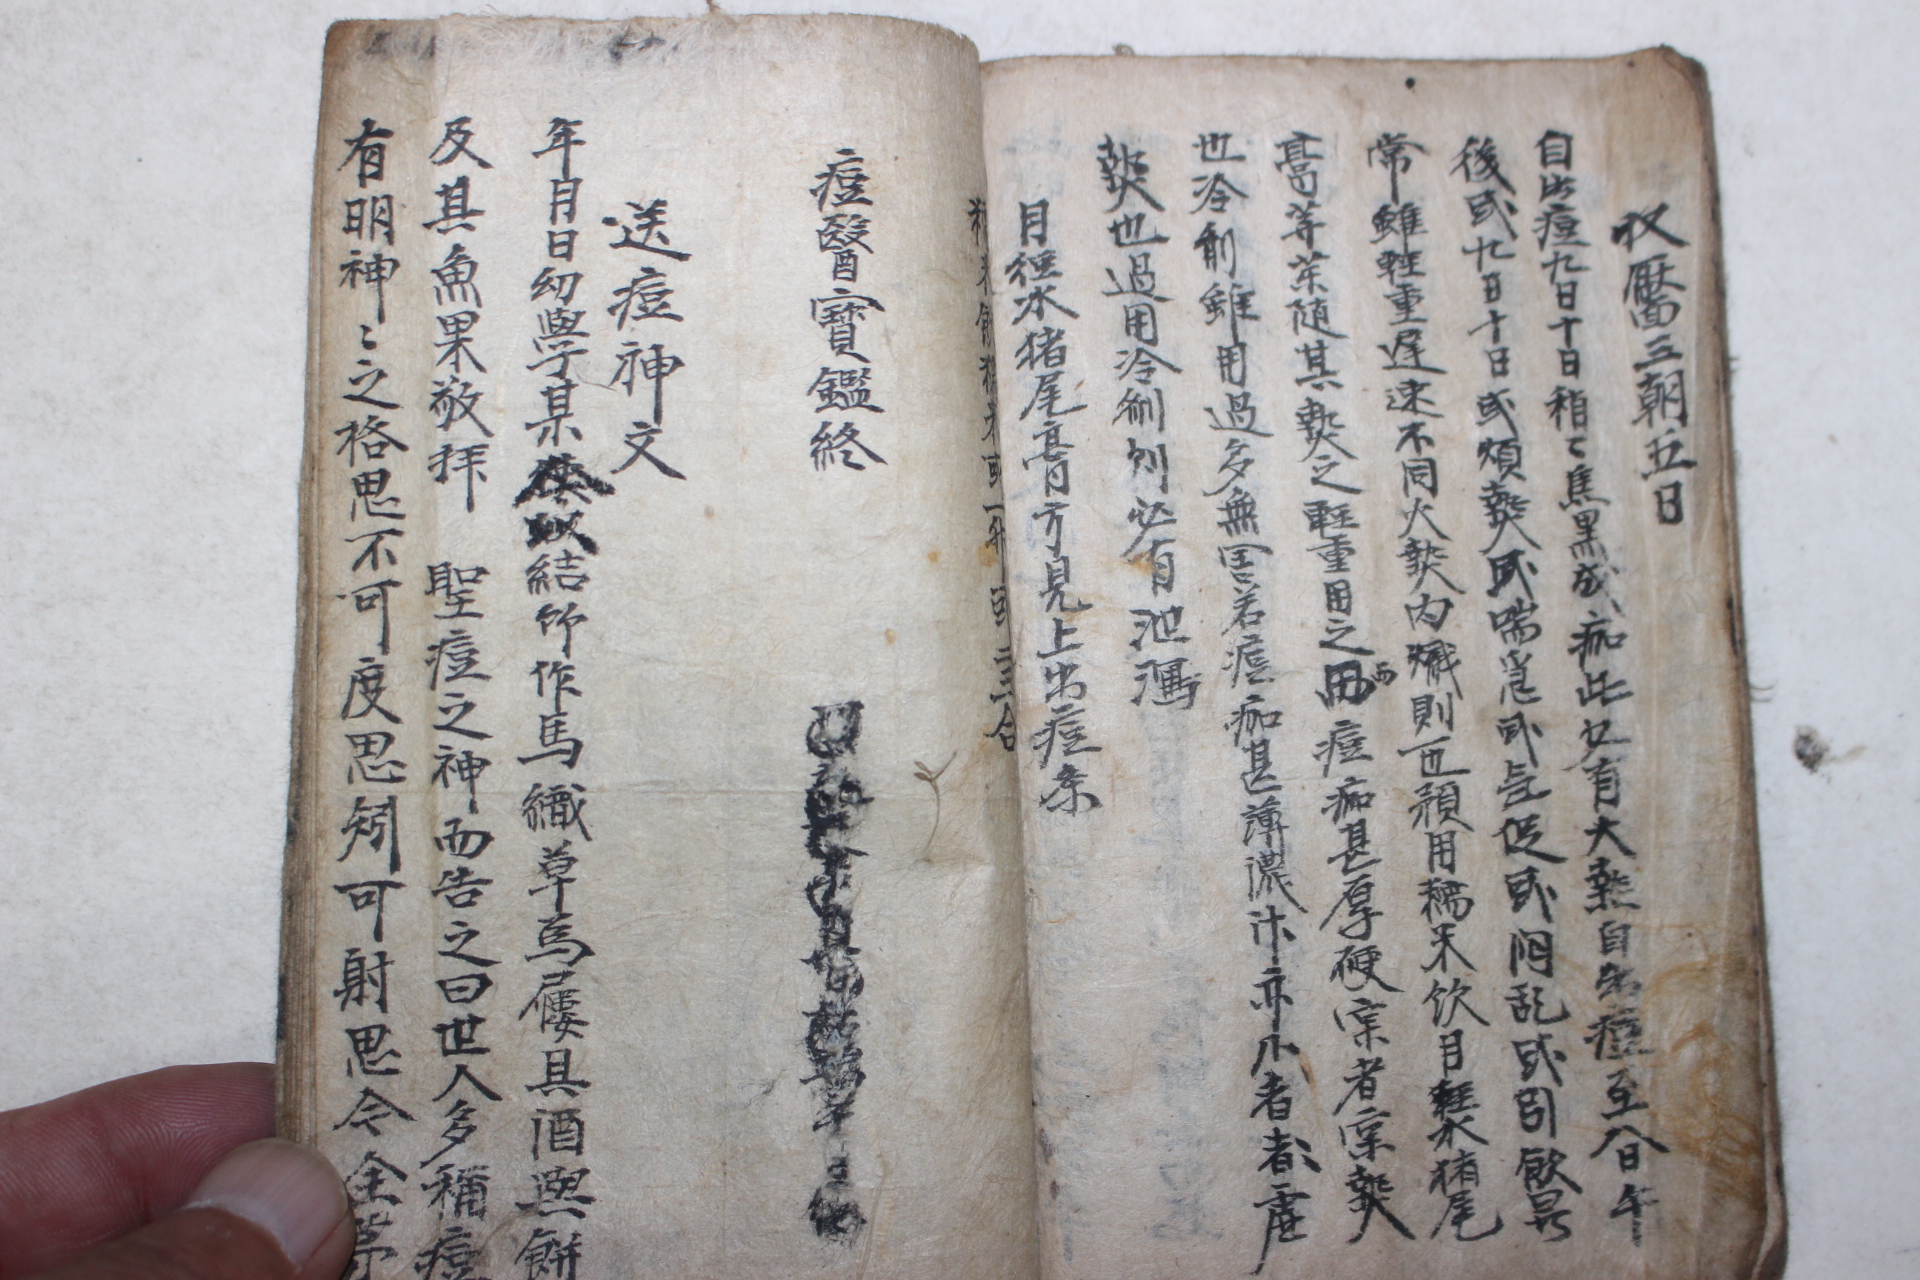 收靨三朝五日
自出痘九日十日稍〻焦黑成痂此也有大熱自出痘至八日午
後或九日十日或煩熱或喘急或气促或悶乱或引飮異
常雖輕重遲速不同火熱內熾則一也頻用糯米飮月經水猪尾
膏等茱隨其熱之輕重用之 而痘痂甚厚硬家者家熱
也冷劑雖用過多無害若痘痂甚薄濃汁亦小者表虛
熱也過用冷劑則必有泄瀉
月經水猪尾膏方見上出痘条
痘醫寶鑑終
送痘神文
年月日幼學某 結芻作馬織草爲屨具酒與餠
及其魚果敬拜 聖痘之神而告之曰世人多稱痘
有明神〻之格思不可度思矧可射思今全